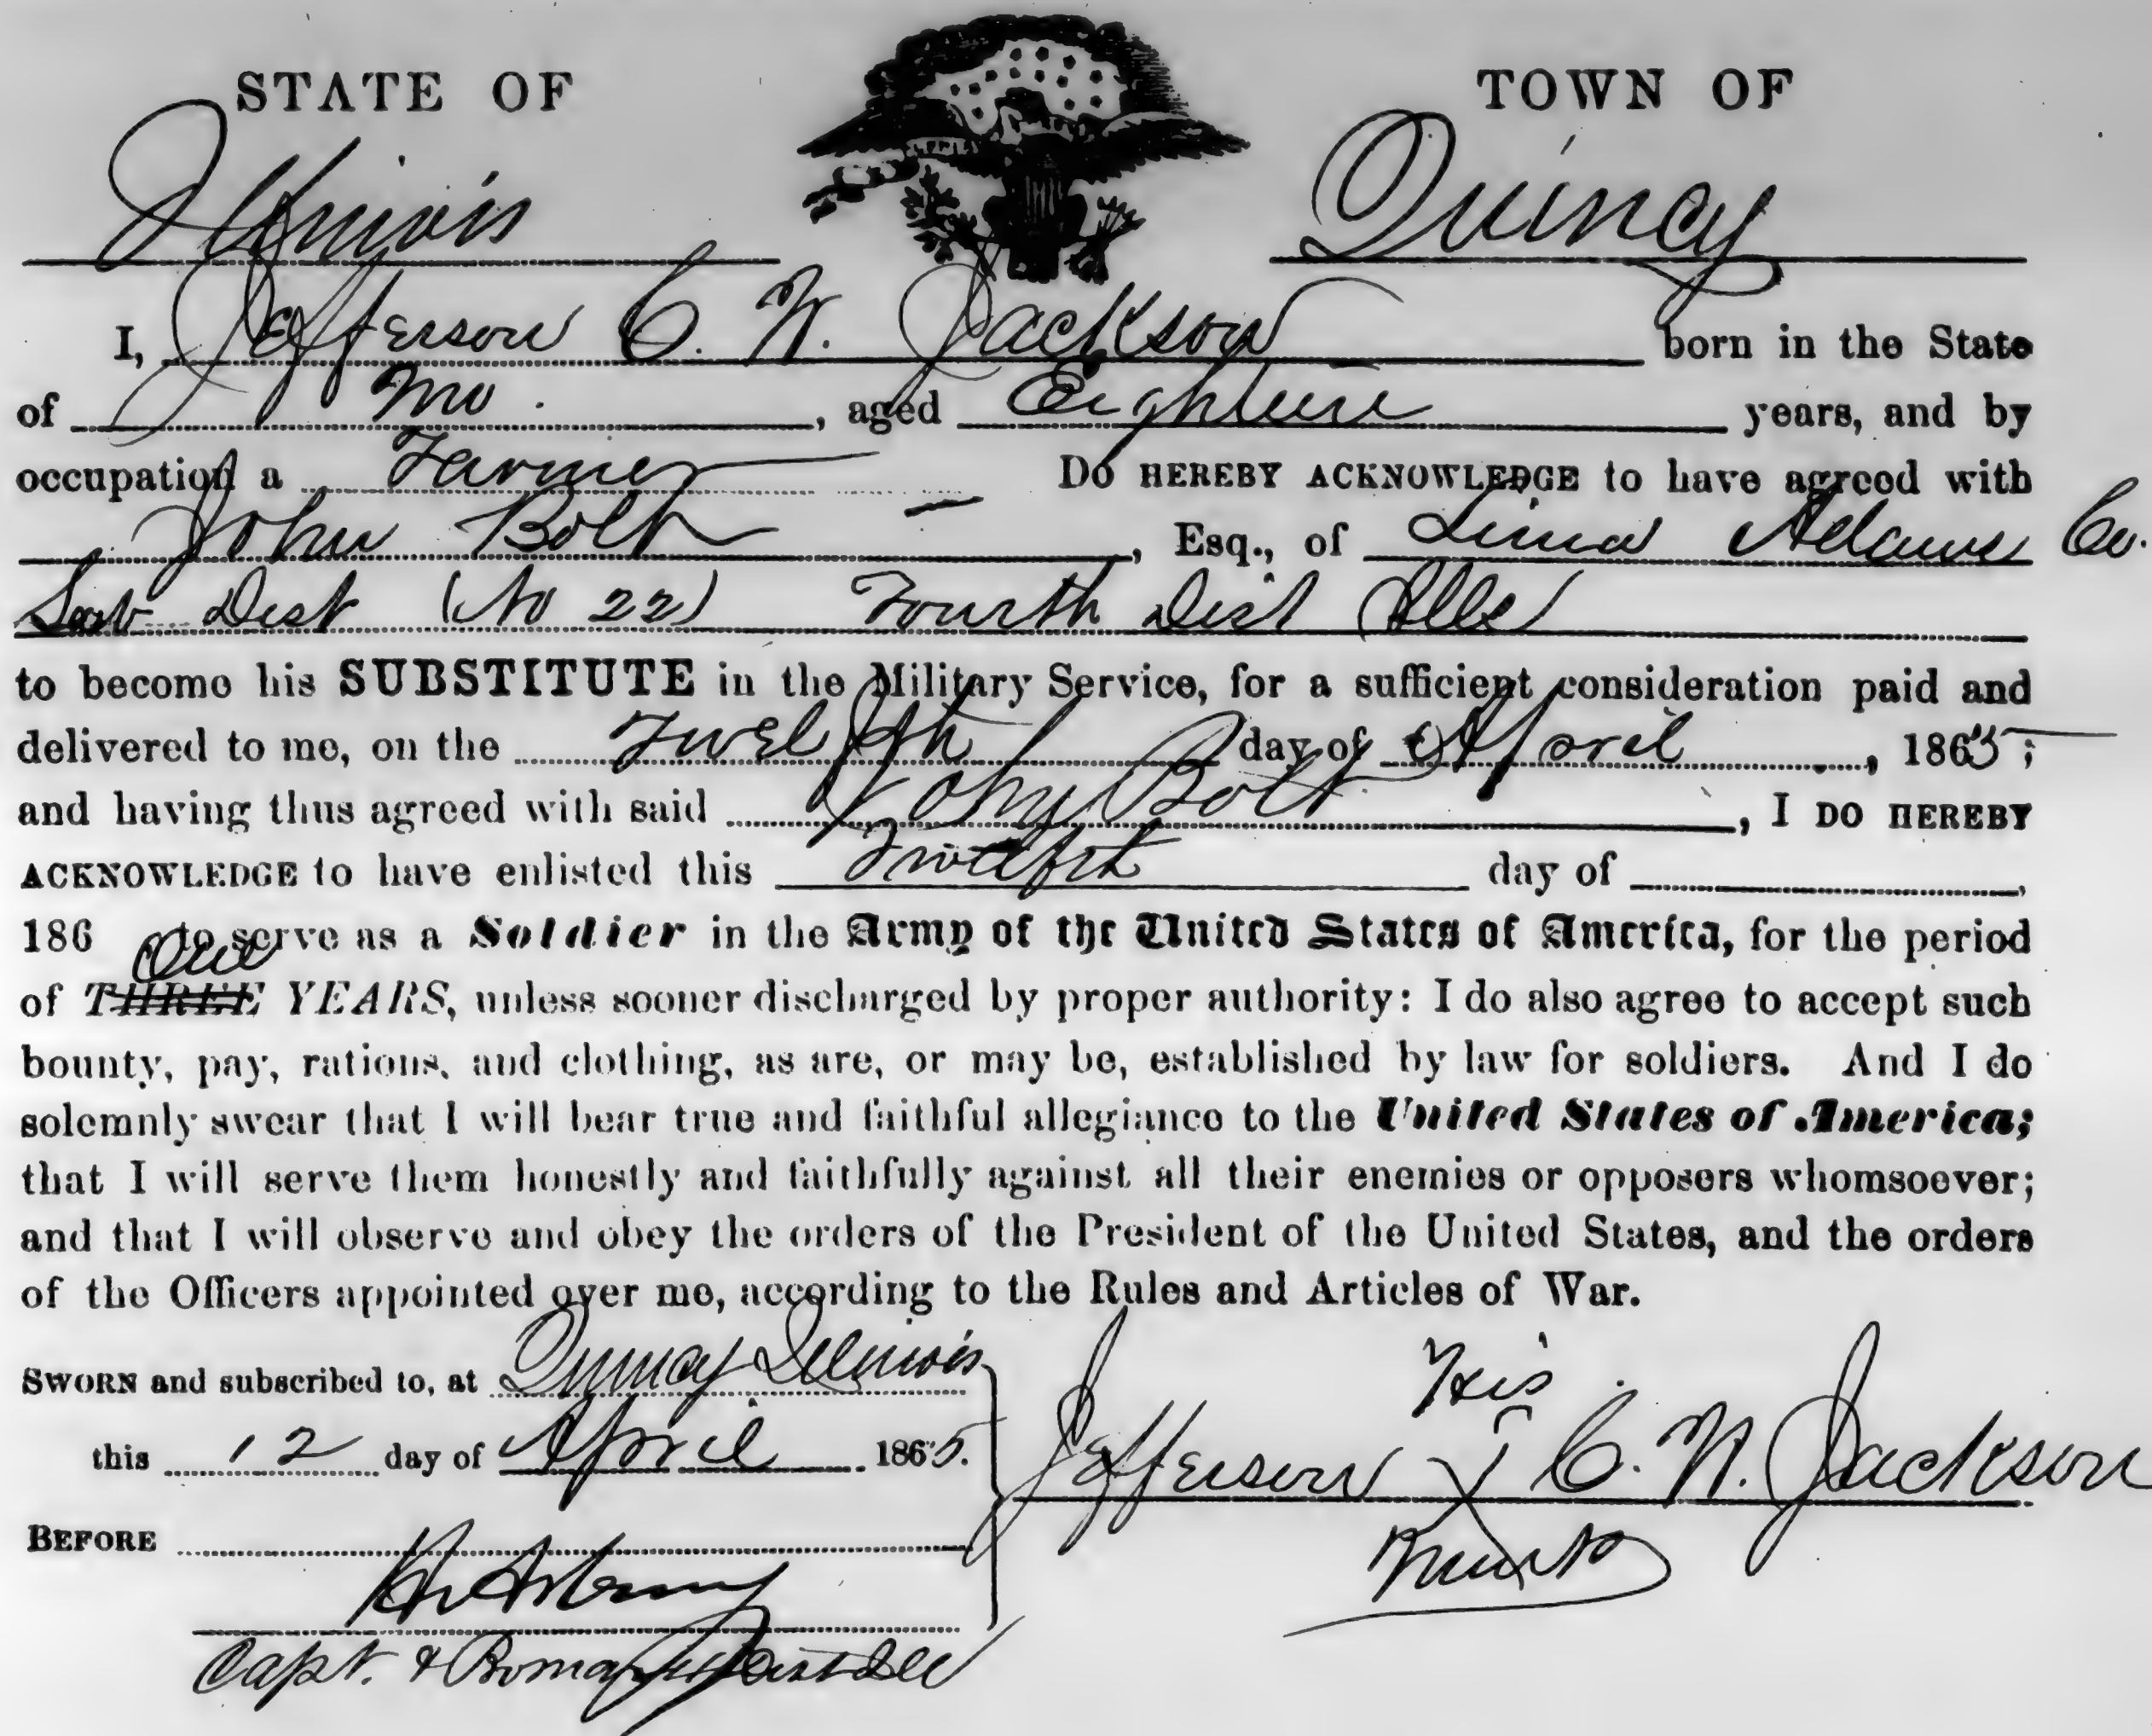 STATE OF TOWN OF
Illinois Quincy
I, Jefferson C. N. Jackson born in the State
of Mo. , aged Eighteen years, and by
occupation a Farmer DO HEREBY ACKNOWLEDGE to have agreed with
John Bolt , Esq., of Lima Adams Co.
Sub Dist (No 22) Fourth Dist Ills
to become his SUBSTITUTE in the Military Service, for a sufficient consideration paid and
delivered to me, on the Twelfth day of April , 1865;
and having thus agreed with said John Bolt , I DO HEREBY
ACKNOWLEDGE to have enlisted this Twelfth day of ,
186 to serve as a Soldier in the Army of the United States of America, for the period
One
of THREE YEARS, unless sooner discharged by proper authority: I do also agree to accept such
bounty, pay, rations, and clothing, as are, or may be, established by law for soldiers. And I do
solemnly swear that I will bear true and faithful allegiance to the United States of America;
that I will serve them honestly and faithfully against all their enemies or opposers whomsoever;
and that I will observe and obey the orders of the President of the United States, and the orders
of the Officers appointed over me, according to the Rules and Articles of War.
SWORN and subscribed to, at Quincy Illinois
this 12 day of April 1865.
His
Jefferson X C. N. Jackson
Mark
BEFORE
Capt. & Pro Mar 4th Dist Ill